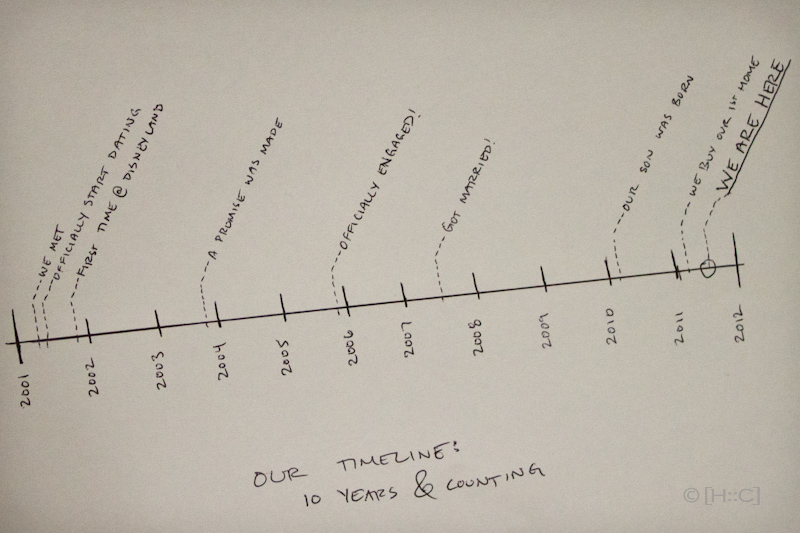 WE MET
OFFICIALLY START DATING
FIRST TIME @ DISNEYLAND
A PROMISE WAS MADE
OFFICIALLY ENGAGED!
GOT MARRIED!
OUR SON WAS BORN
WE BUY OUR 1ST HOME
WE ARE HERE
2001
2002
2003
2004
2005
2006
2007
2008
2009
2010
2011
2012
OUR TIMELINE:
10 YEARS & COUNTING
© [H::C]